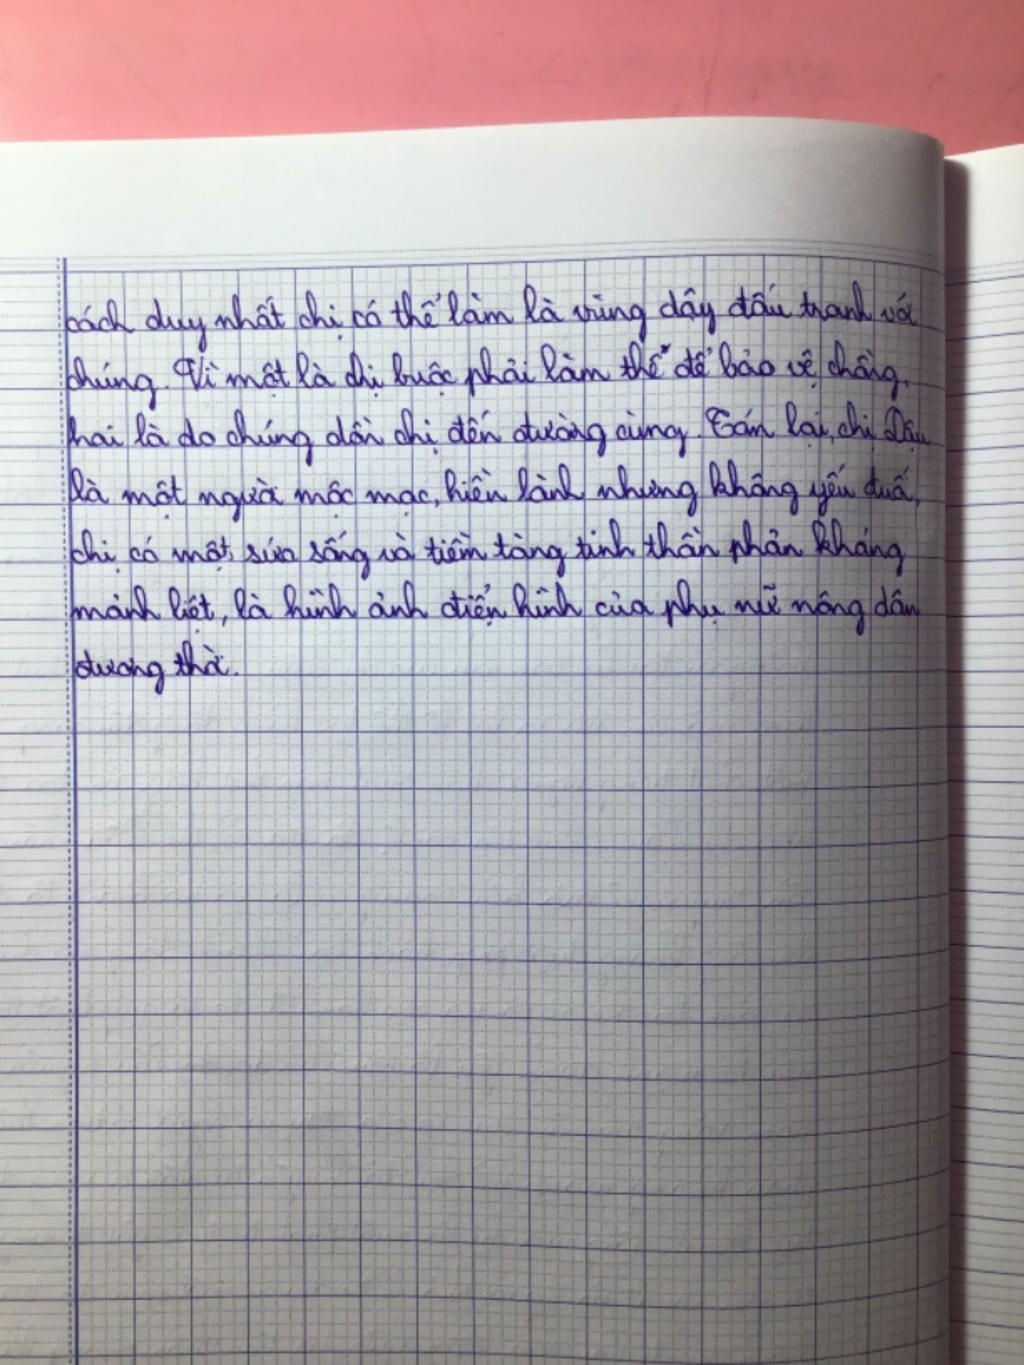 cách duy nhất chị có thể làm là vùng dậy đấu tranh với
chúng. Vì một là chị buộc phải làm thế để bảo vệ chồng,
hai là do chúng dồn chị đến đường cùng. Tóm lại, chị Dậu
là một người mộc mạc, hiền lành nhưng không yếu đuối,
chị có một sức sống và tiềm tàng tinh thần phản kháng
mãnh liệt, là hình ảnh điển hình của phụ nữ nông dân
đương thời.